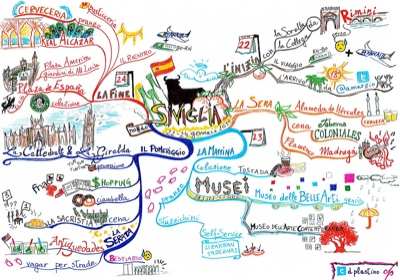 CERVECERIA
Pasticceria
pranzo
REAL ALCAZAR
IL RIENTRO
Plaza America
Giardini di M. Luisa
Plaza de España
colazione
LA FINE
24
SIVIGLIA
gennaio
L'INIZIO
22
La Sorella
La Collega
Rimini
IL VIAGGIO
L'ARRIVO
LA SERA
Alameda de Hércules
cena
Taberna
COLONIALES
Flamenco
Madrugà
23
La Cattedrale & La Giralda
IL POMERIGGIO
LA MATTINA
colazione
TOSTADA
MUSEI
MUSEO delle BELLE ARTI
GRATIS
MUSEO DELL'ARTE CONTEMPORANEA
pranzo
stuzzichini
Self-Service
SHOPPING
ciambella
LA SACRISTIA
cena
SERIE
Antiguedades
vagar per strade
BESTIARIO
d.plastino